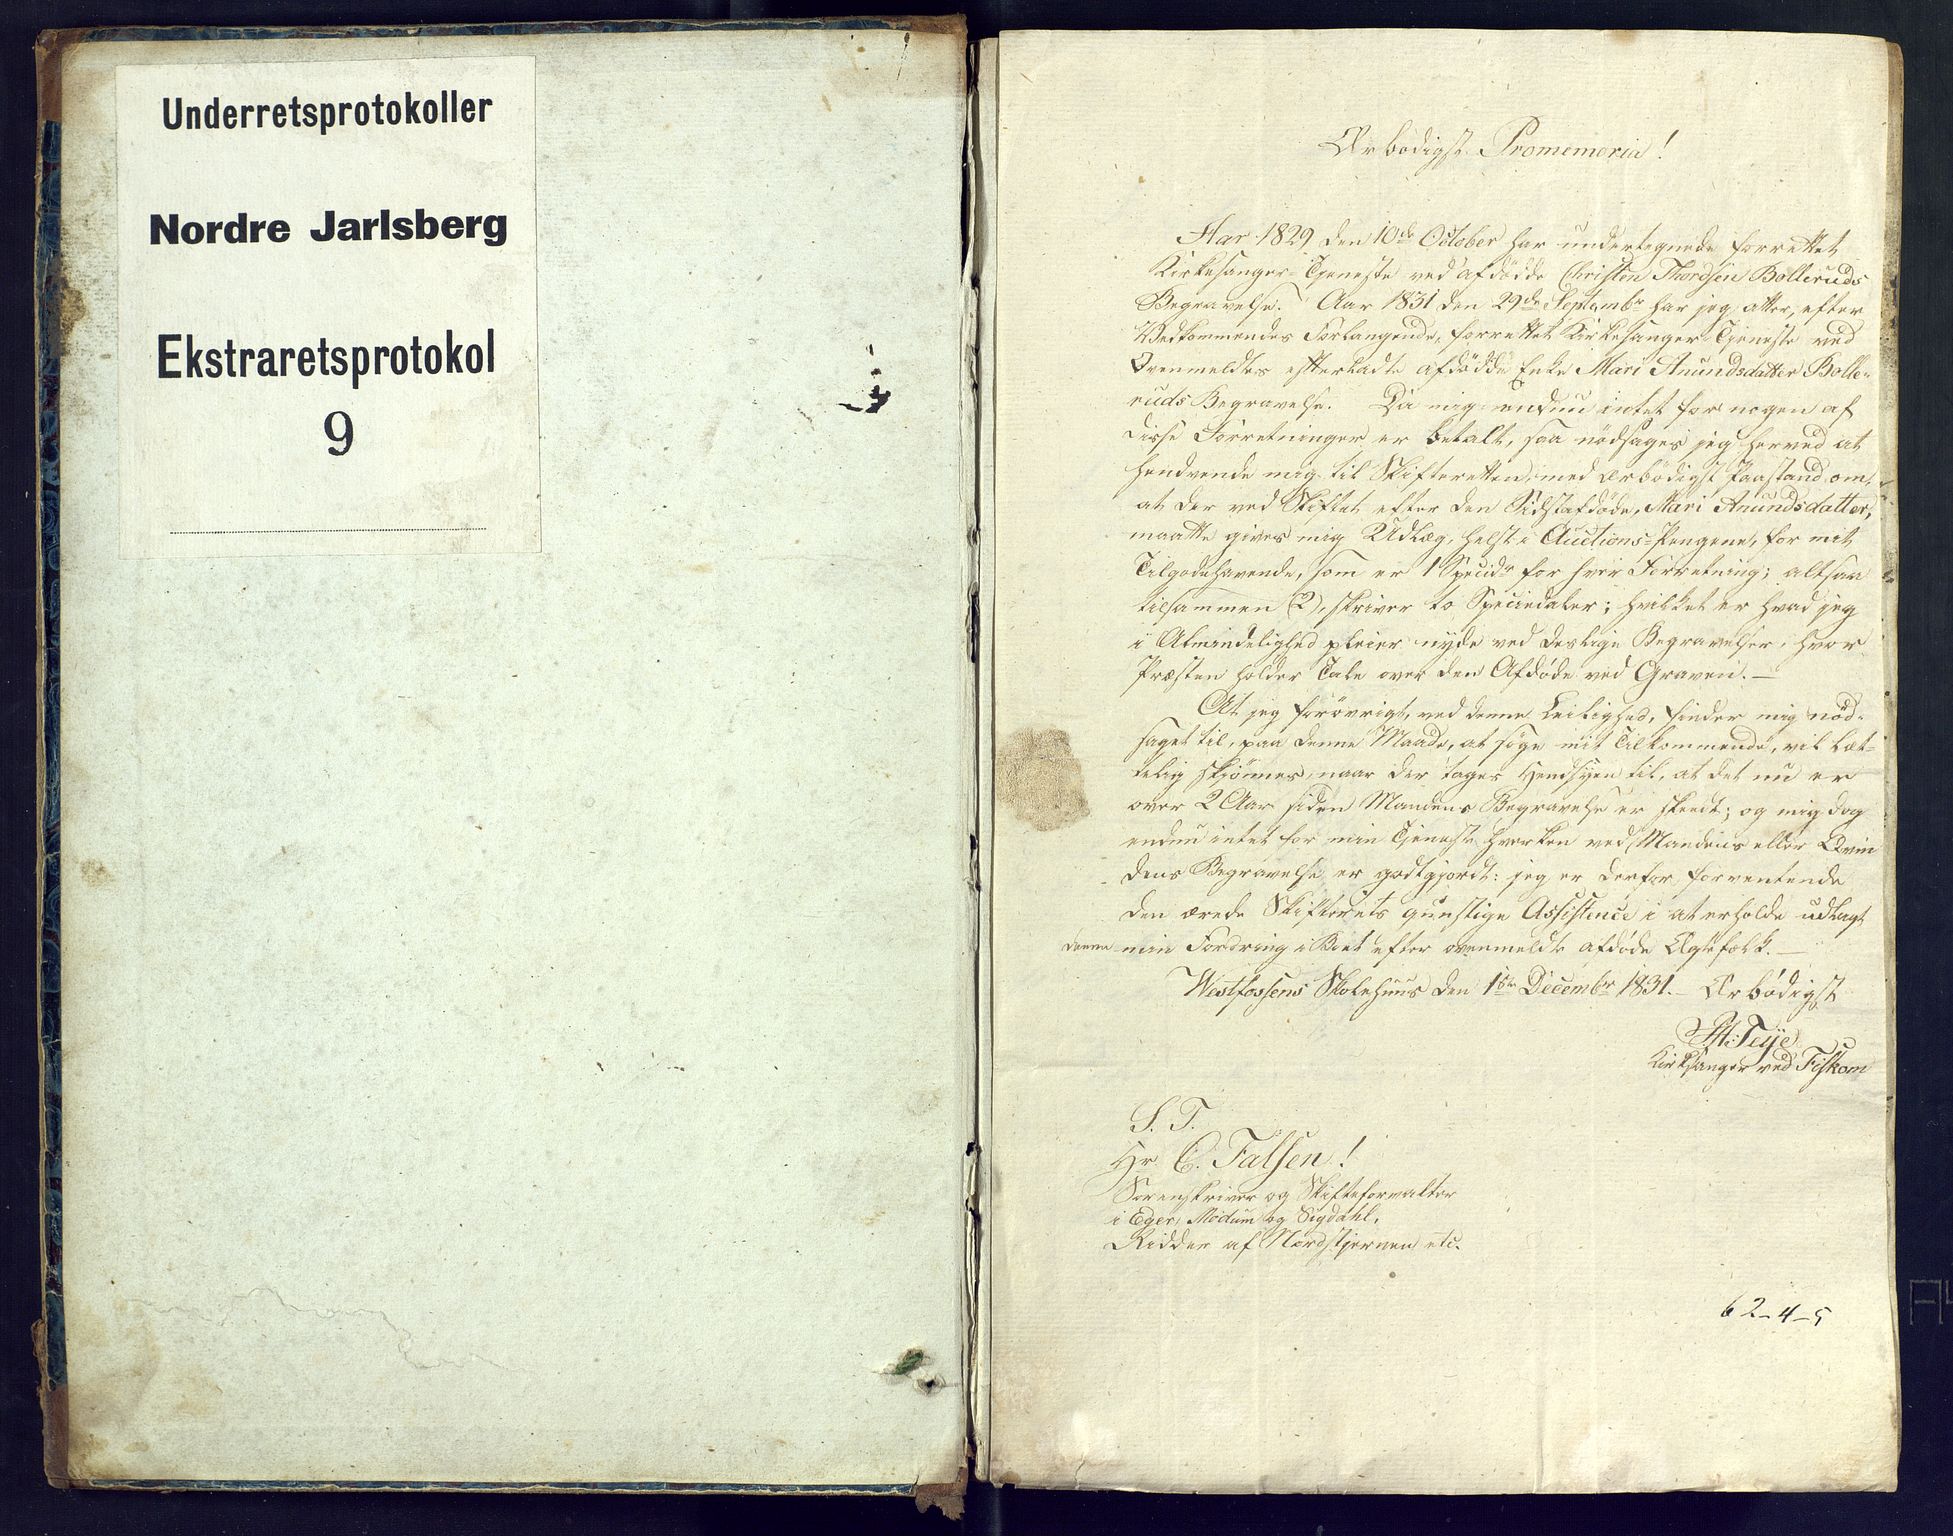 Underretsprotokoller
Nordre Jarlsberg
Ekstraretsprotokol
9
Ærbødigst Promemoria!
Aar 1829 den 10de October har undertegnede forrettet
Kirkesanger-Tjeneste ved afdøde Christen Thordsen Bolleruds
Begravelse. Aar 1831 den 29de Septembr har jeg atter, efter
Vedkommendes Forlangende, forrettet Kirkesanger Tjeneste ved
Ovenmeldtes efterladte afdøde Enke Mari Anundsdatter Bolle-
ruds Begravelse. Da mig endnu intet for nogen af
disse Forretninger er betalt, saa nødsages jeg herved at
henvende mig til Skifteretten, med ærbødigst Paastand om,
at der ved Skiftet efter den Sidstafdøde, Mari Anundsdatter,
maatte gives mig Udlæg, helst i Auctions-Pengene, for mit
Tilgodehavende, som er 1 Specidr for hver Forretning; altsaa
tilsammen (2), skriver to Speciedaler; hvilket er hvad jeg
i Almindelighed pleier nyde ved deslige Begravelser, hvor
Præsten holder Tale over den Afdøde ved Graven. —
At jeg forøvrigt, ved denne Leilighed, finder mig nød-
saget til, paa denne Maade, at søge mit Tilkommende, vil let-
telig skjønnes, naar der tages Hensyen til, at det nu er
over 2 Aar siden Mandens Begravelse er skeedt; og mig dog
endnu intet for min Tjeneste hverken ved Mandens eller Qvin
dens Begravelse er godtgjordt: jeg er derfor forventende
den ærede Skifterets gunstige Assistence i at erholde udlagt
denne min Fordring i Boet efter ovenmeldte afdøde Ægtefolk. —
Westfossens Skolehuus den 1ste Decembr 1831. — Ærbødigst
Teije
Kirksanger ved Fiskom
S. T.
Hr. C. Falsen!
Sorenskriver og Skifteforvalter
i Eger, Modum og Sigdahl,
Ridder af Nordstjernen etc.
62-4-5